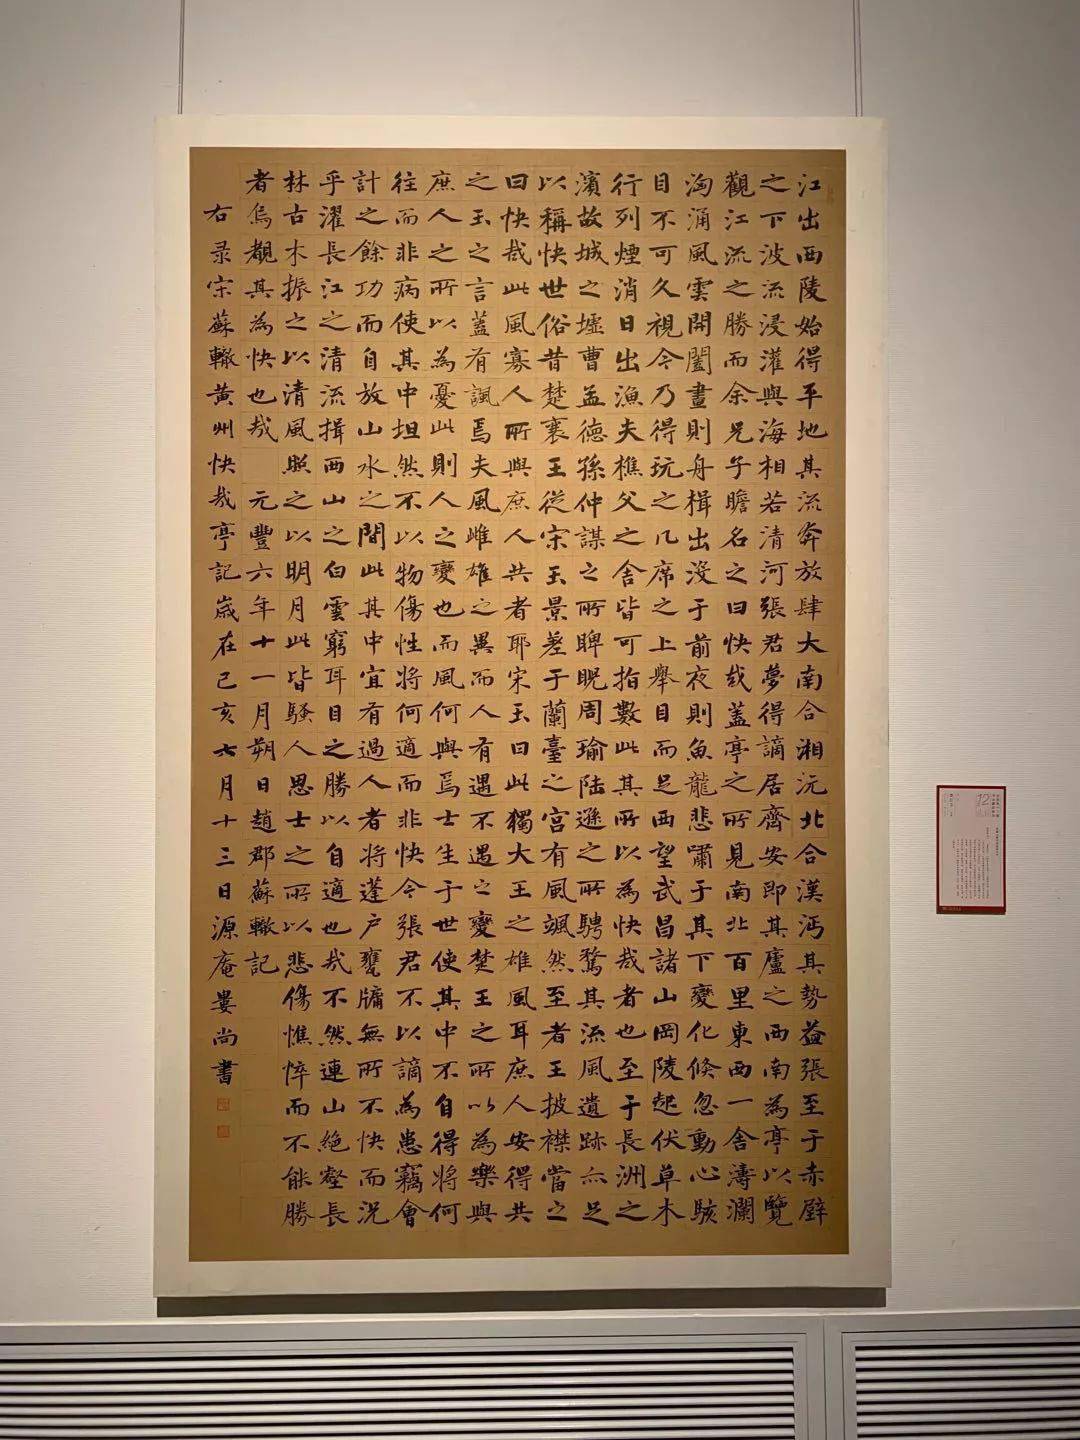 江出西陵始得平地其流奔放肆大南合湘沅北合漢沔其勢益張至于赤壁
之下波流浸灌與海相若清河張君夢得謫居齊安即其廬之西南為亭以覽
觀江流之勝而余兄子瞻名之曰快哉蓋亭之所見南北百里東西一舍濤瀾
洶涌風雲開闔晝則舟楫出沒于前夜則魚龍悲嘯于其下變化倏忽動心駭
目不可久視今乃得玩之几席之上舉目而足西望武昌諸山岡陵起伏草木
行列煙消日出漁夫樵父之舍皆可指數此其所以為快哉者也至于長洲之
濱故城之墟曹孟德孫仲謀之所睥睨周瑜陸遜之所騁騖其流風遺跡亦足
以稱快世俗昔楚襄王從宋玉景差于蘭臺之宮有風颯然至者王披襟當之
曰快哉此風寡人所與庶人共者耶宋玉曰此獨大王之雄風耳庶人安得共
之玉之言蓋有諷焉夫風雌雄之異而人有遇不遇之變楚王之所以為樂與
庶人之所以為憂此則人之變也而風何與焉士生于世使其中不自得將何
往而非病使其中坦然不以物傷性將何適而非快今張君不以謫為患竊會
計之餘功而自放山水之間此其中宜有過人者將蓬戶甕牖無所不快而況
乎濯長江之清流揖西山之白雲窮耳目之勝以自適也哉不然連山絕壑長
林古木振之以清風照之以明月此皆騷人思士之所以悲傷憔悴而不能勝
者烏覩其為快也哉 元豐六年十一月朔日趙郡蘇轍記
右录宋蘇轍黃州快哉亭記歲在己亥六月十三日源庵婁尚書
12